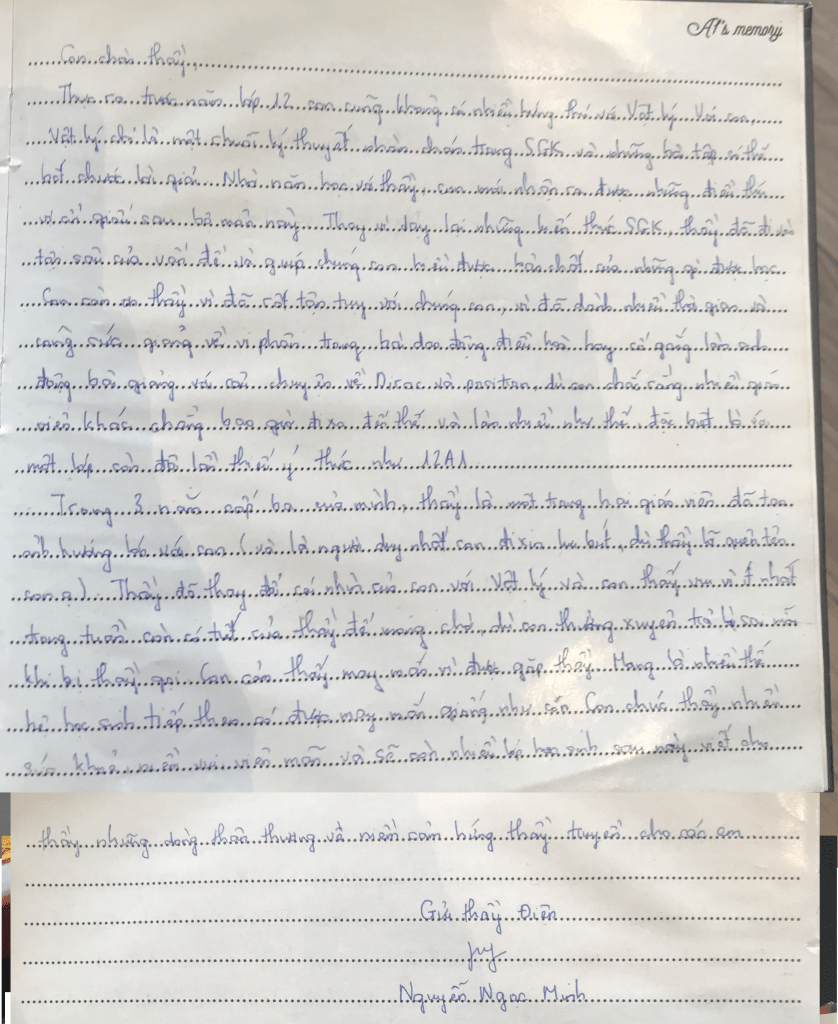 A1's memory
Con chào thầy,
Thực ra trước năm lớp 12 con cũng không có nhiều hứng thú với Vật lý. Với con,
Vật lý chỉ là một chuỗi lý thuyết nhàm chán trong SGK và những bài tập có thể
bắt chước lời giải. Nhờ năm học với thầy, con mới nhận ra được những điều thú
vị ẩn giấu sau bộ môn này. Thay vì dạy lại những kiến thức SGK, thầy đã đi vào
tận sâu của vấn đề và giúp chúng con hiểu được bản chất của những gì được học.
Con cảm ơn thầy vì đã rất tận tụy với chúng con, vì đã dành nhiều thời gian và
công sức giảng về vi phân trong bài dao động điều hoà hay cố gắng làm sinh
động bài giảng với câu chuyện về Dirac và positron, dù con chắc rằng nhiều giáo
viên khác chẳng bao giờ đi xa đến thế và làm nhiều như thế, đặc biệt là ở
một lớp còn đôi lần thiếu ý thức như 12A1.
Trong 3 năm cấp ba của mình, thầy là một trong hai giáo viên đã tạo
ảnh hưởng lớn với con (và là người duy nhất con đi xin lưu bút, dù thầy lỡ quên tên
con ạ). Thầy đã thay đổi cái nhìn của con với Vật lý và con thấy vui vì ít nhất
trong tuần còn có tiết của thầy để mong chờ, dù con thường xuyên trả lời sai mỗi
khi bị thầy gọi. Con cảm thấy may mắn vì được gặp thầy. Mong là nhiều thế
hệ học sinh tiếp theo có được may mắn giống như con. Con chúc thầy nhiều
sức khoẻ, niềm vui viên mãn và sẽ còn nhiều lớp học sinh sau này viết cho
thầy những dòng thân thương về niềm cảm hứng thầy truyền cho các em
Gửi thầy Điện
Nguyễn Ngọc Minh